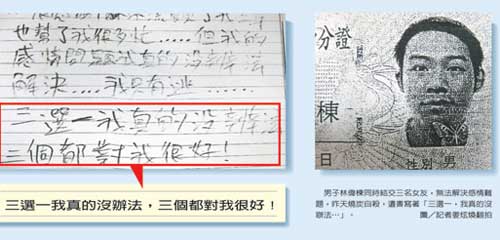 也幫了我很多忙......但我的
感情問題我真的沒辦法
解決.....我只有逃......
三選一我真的沒辦法
三個都對我很好!
三選一我真的沒辦法，三個都對我很好！
分證
棟
日
性別 男
男子林偉棟同時結交三名女友，無法解決感情難
題，昨天燒炭自殺，遺書寫著「三選一，我真的沒
辦法…」。 圖／記者姜炫煥翻拍